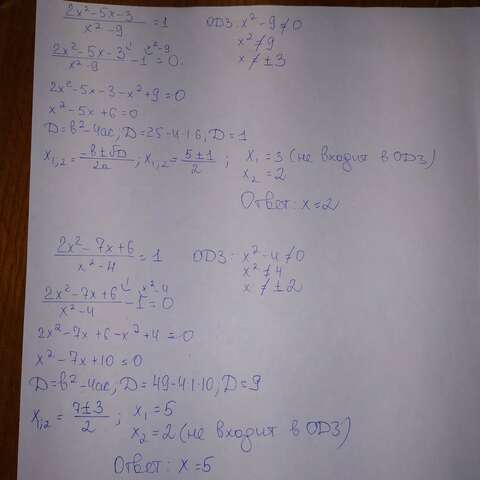 (2x²-5x-3)/(x²-9) = 1   ОДЗ: x²-9≠0
x²≠9
(2x²-5x-3)/(x²-9) - 1 = 0   x≠±3
2x²-5x-3-x²+9=0
x²-5x+6=0
D=в²-4ac; D=25-4·1·6, D=1
x₁,₂ = (-в±√D)/2a; x₁,₂ = (5±1)/2; x₁=3 (не входит в ОДЗ)
x₂=2
Ответ: x=2
(2x²-7x+6)/(x²-4) = 1   ОДЗ: x²-4≠0
x²≠4
(2x²-7x+6)/(x²-4) - 1 = 0   x≠±2
2x²-7x+6-x²+4=0
x²-7x+10=0
D=в²-4ac; D=49-4·1·10; D=9
x₁,₂ = (7±3)/2; x₁=5
x₂=2 (не входит в ОДЗ)
Ответ: x=5